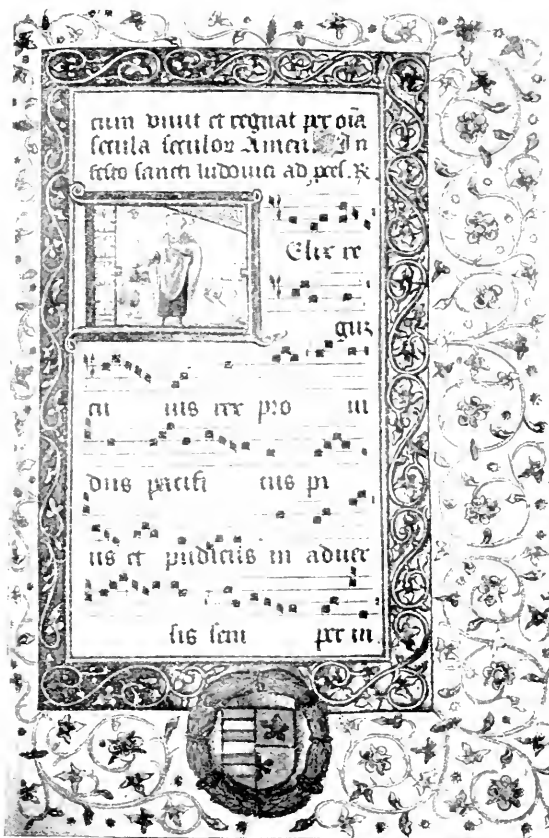 cum viuit et regnat per oīa
secula seculoꝝ Amen. In
festo sancti ludouici ad pces. R
Elix re
gnū
cu ius rex pro ui
dus pacifi cus pi
us et pudicus in aduer
sis sem per in